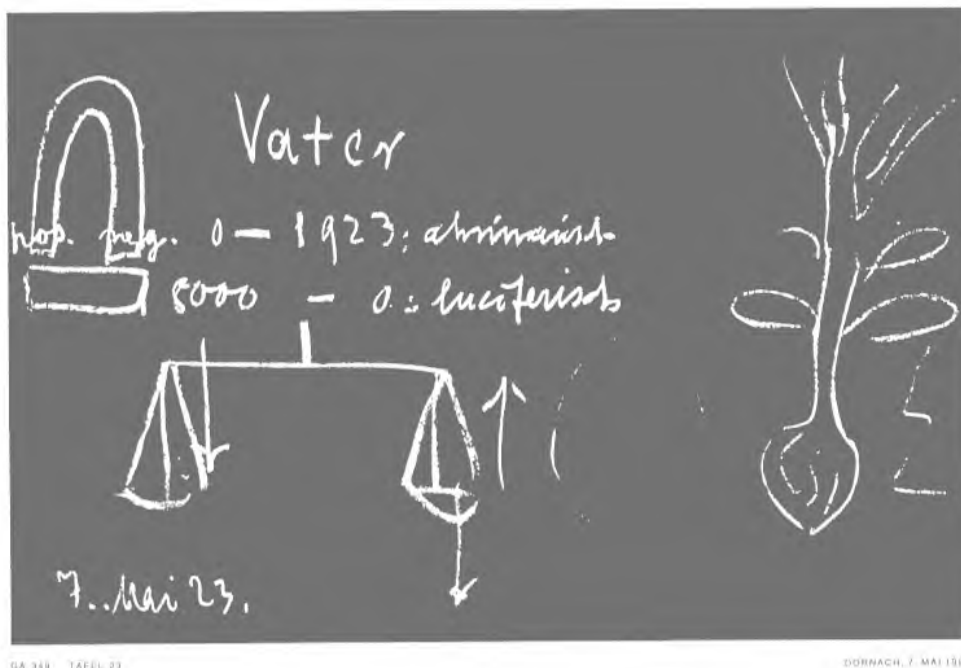 Vater
pos. neg. 0 — 1923: ahrimanisch
8000 — 0: luciferisch
7. Mai 23.
GA 349 TAFEL 23
DORNACH, 7. MAI 19